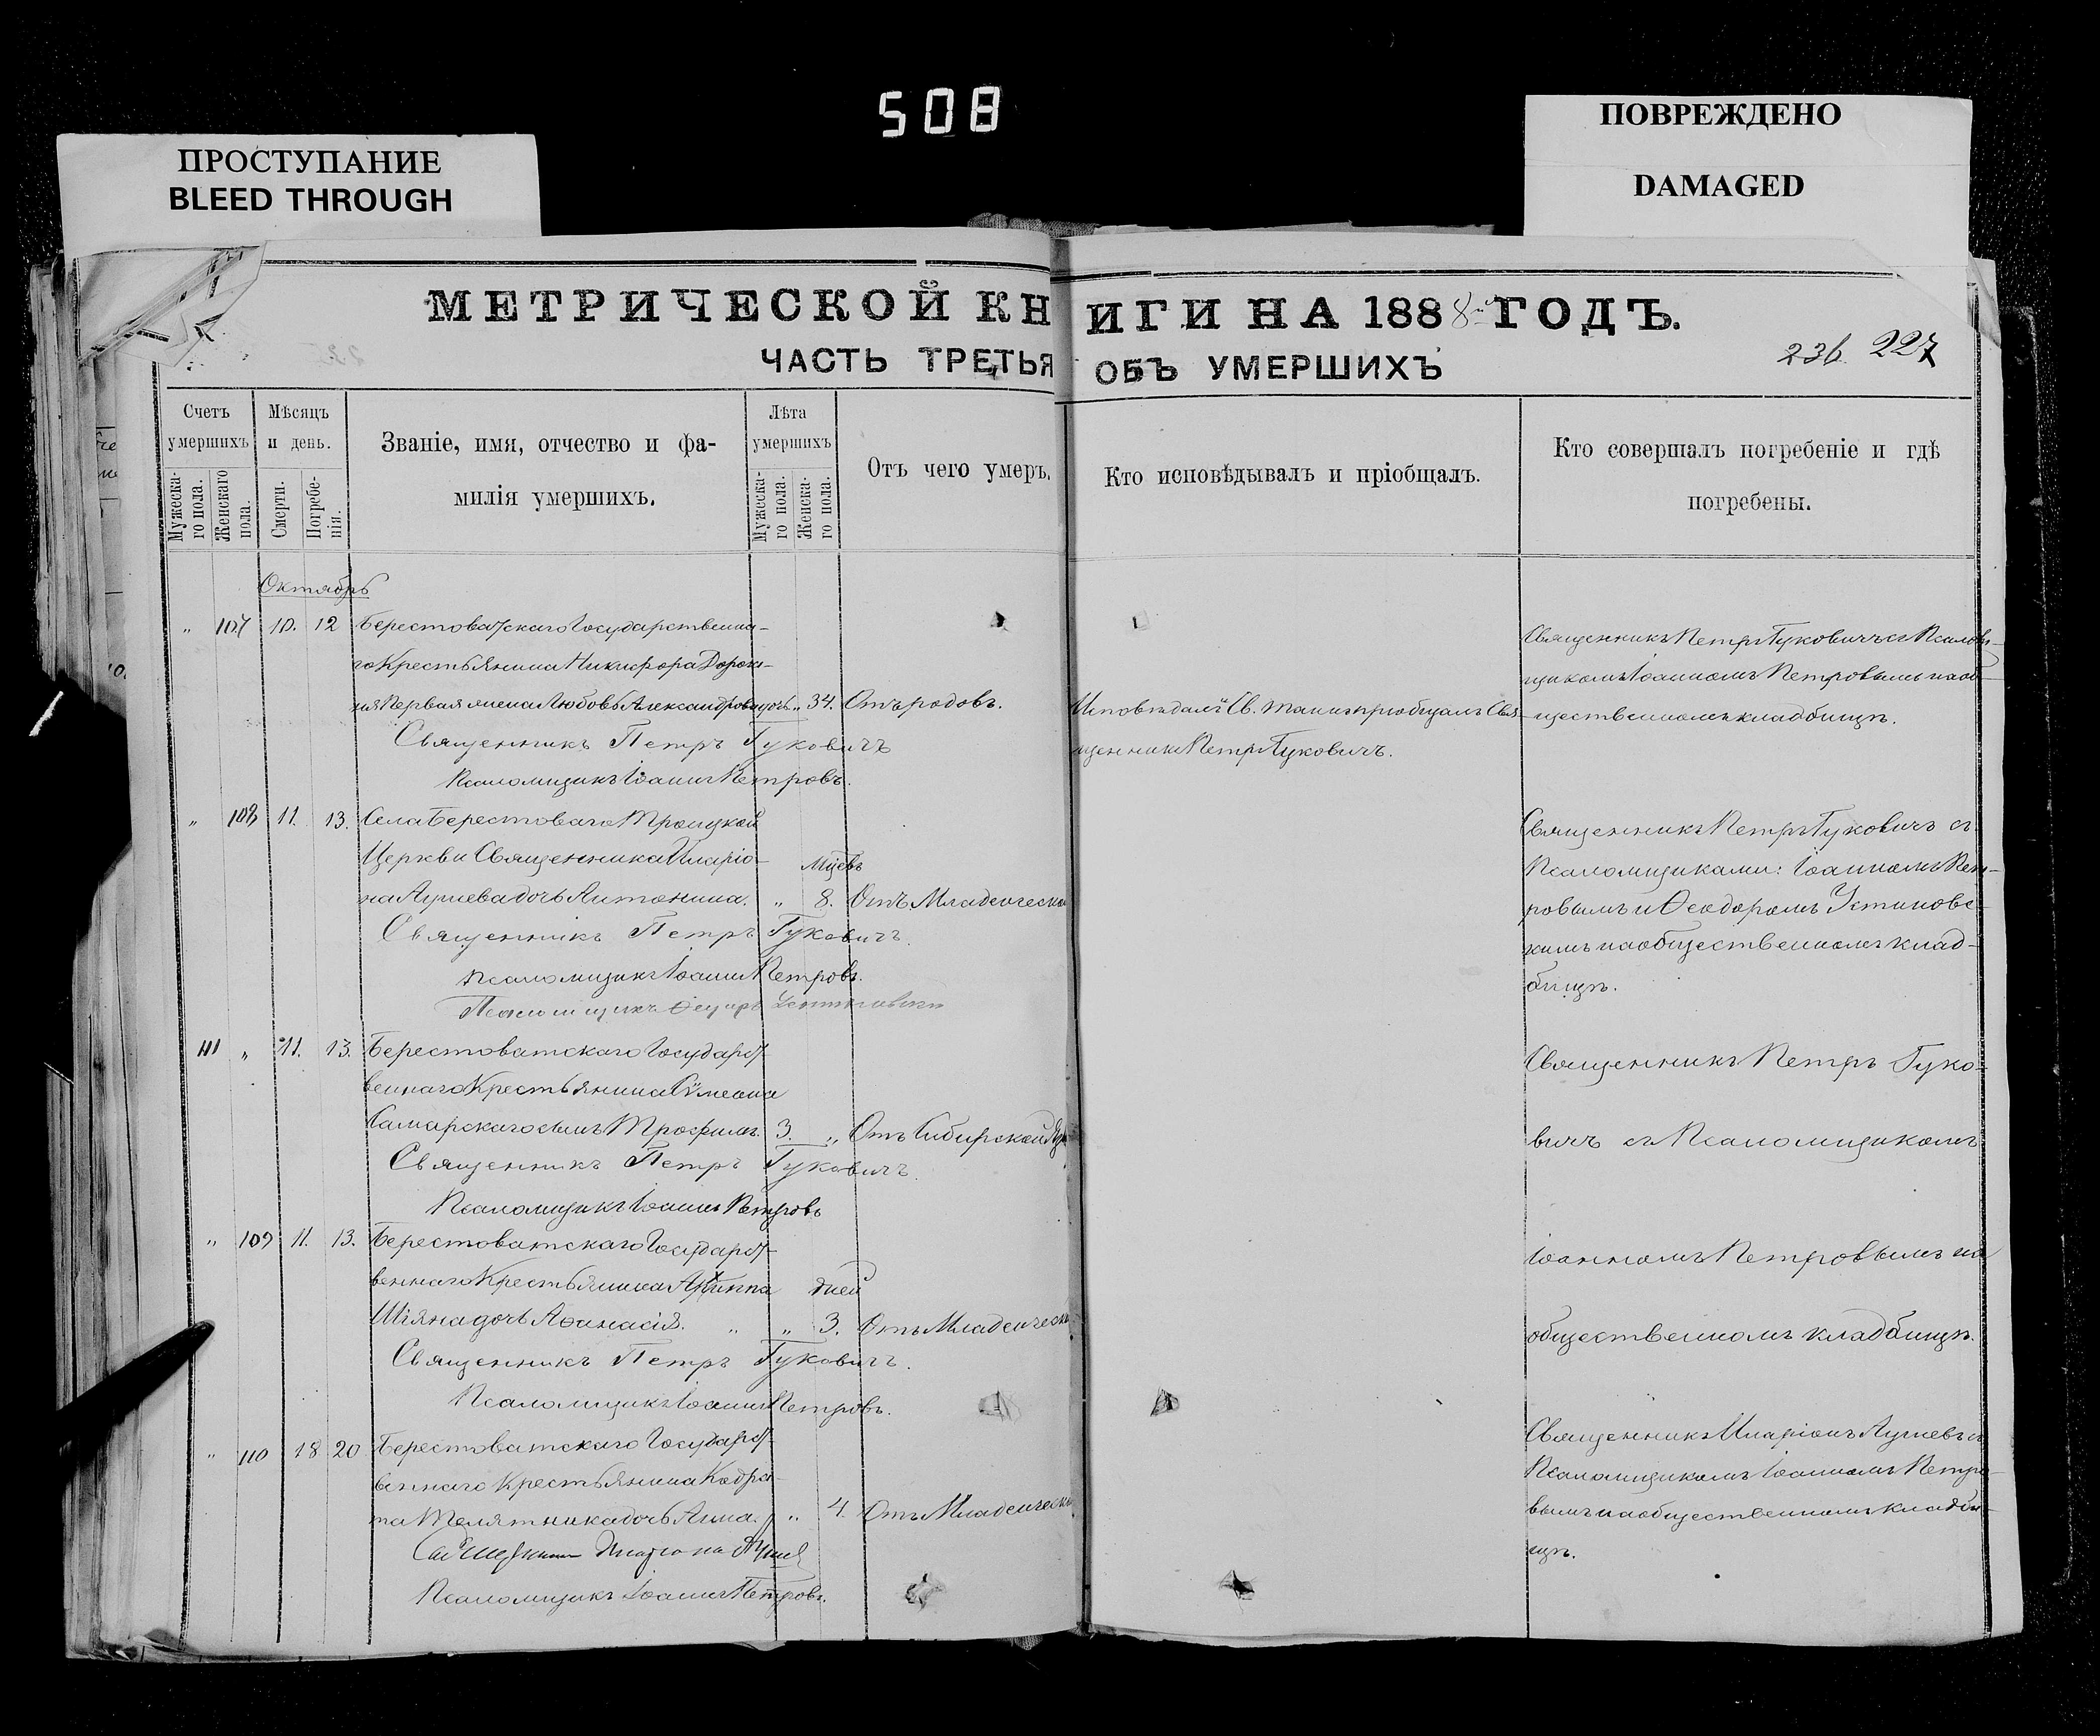 508
ПРОСТУПАНИЕ
BLEED THROUGH
ПОВРЕЖДЕНО
DAMAGED
МЕТРИЧЕСКОЙ КНИГИ НА 1888 ГОДЪ.
ЧАСТЬ ТРЕТЬЯ ОБЪ УМЕРШИХЪ
236. 227
Счетъ умершихъ
Мужеска-го пола.
Женскаго пола.
Мѣсяцъ и день.
Смерти.
Погребе-нія.
Званіе, имя, отчество и фа-
милія умершихъ.
Лѣта умершихъ
Мужеска-го пола.
Женска-го пола.
Отъ чего умеръ.
Кто исповѣдывалъ и пріобщалъ.
Кто совершалъ погребеніе и гдѣ
погребены.
Октябрь
„ 107 10. 12 Берестоватскаго Государственна-
го Крестьянина Никифора
Первая жена Любовь Александрова „ 34. Отъ родовъ.
Священникъ Петръ Гуковичъ
Псаломщикъ Іоаннъ Петровъ.
Исповѣдалъ и Св. Таинъ пріобщалъ Свя-
щенникъ Петръ Гуковичъ.
Священникъ Петръ Гуковичъ съ Псалом-
щикомъ Іоанномъ Петровымъ на об-
щественномъ кладбищѣ.
„ 108 11. 13. Села Берестоваго Троицкой
Церкви Священника Иларіо-
на дочь Антонина. „ Мцевъ 8. Отъ Младенческ
Священникъ Петръ Гуковичъ.
Псаломщикъ Іоаннъ Петровъ.
Псаломщикъ Ѳеодоръ Устиновскій
Священникъ Петръ Гуковичъ съ
Псаломщиками: Іоанномъ Пет-
ровымъ и Ѳеодоромъ Устиновс-
кимъ на общественномъ клад-
бищѣ.
111 „ 11. 13. Берестоватскаго Государст-
веннаго Крестьянина Сѵмеона
Самарскаго сынъ Трофимъ. 3. „ Отъ Сибирской
Священникъ Петръ Гуковичъ.
Псаломщикъ Іоаннъ Петровъ
Священникъ Петръ Гуко-
вичъ съ Псаломщикомъ
„ 109 11. 13. Берестоватскаго Государст-
веннаго Крестьянина
дочь Аѳанасія. „ „ дней 3. Отъ Младенческ
Священникъ Петръ Гуковичъ.
Псаломщикъ Іоаннъ Петровъ.
Іоанномъ Петровымъ на
общественномъ кладбищѣ.
„ 110 18 20 Берестоватскаго Государст-
веннаго Крестьянина Кодра-
та Телятника дочь Анна. „ 4. Отъ Младенческ
Псаломщикъ Іоаннъ Петровъ.
Священникъ Иларіонъ съ
Псаломщикомъ Іоанномъ Петро-
вымъ на общественномъ кладби-
щѣ.